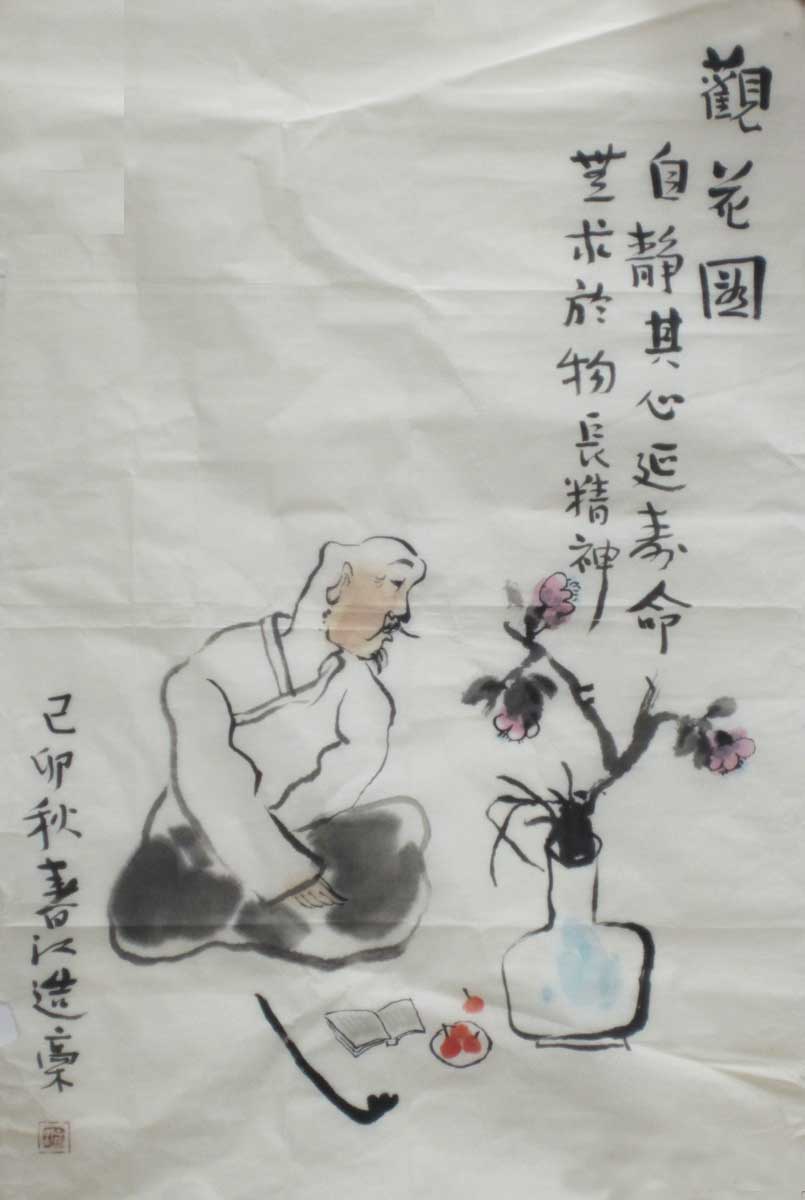 觀花圖
自靜其心延壽命
無求於物長精神
己卯秋春江造稾